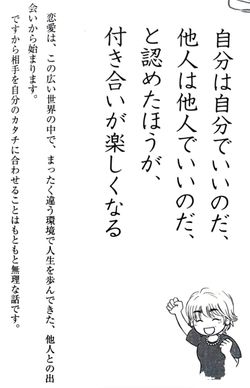 自分は自分でいいのだ、
他人は他人でいいのだ、
と認めたほうが、
付き合いが楽しくなる
恋愛は、この広い世界の中で、まったく違う環境で人生を歩んできた、他人との出
会いから始まります。
ですから相手を自分のカタチに合わせることはもともと無理な話です。